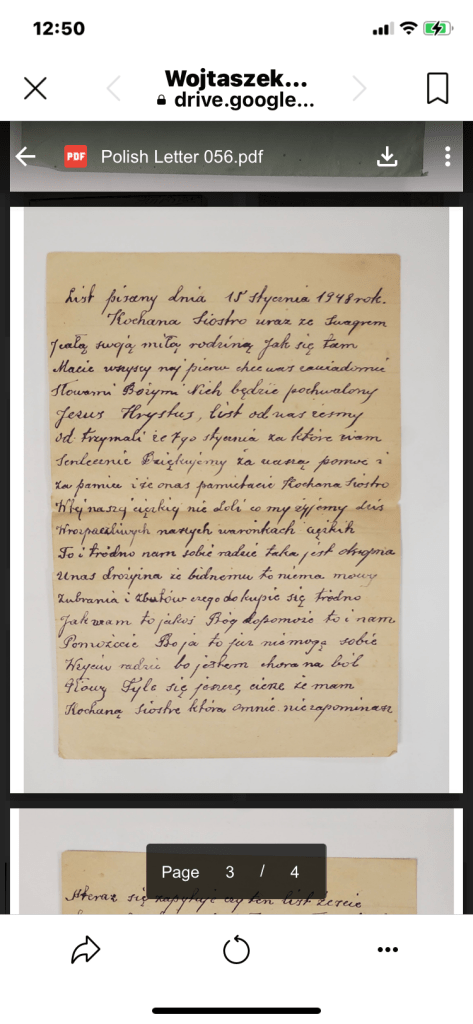 12:50
Wojtaszek...
drive.google...
PDF Polish Letter 056.pdf
List pisany dnia 15 stycznia 1948 rok.
Kochana Siostro uraz ze Swagrem
i całą swoją miłą rodziną Jak się tam
Macie wszyscy naj pierw chce was zawiadomić
Słowami Bożymi Nich będzie pochwalony
Jezus Hrystus, list od was żeśmy
od trzymali że 7go stycznia za które wam
Serdecznie Dziękujemy za waszą pomoc i
za pamiec i że onas pamiitacie Kochana Siostro
Wtej naszej ciężkiej nie doli co my żyjemy dziś
Wrozpaczliwych naszych waronkach cięzkih
To i tródno nam sobie radzić taka jest okropna
Unas drożyjna że bidnemu to niema mowy
zubrania i zbutów czego do kupić się tródno
Jak wam to jakoś Bóg dopomoże to i nam
Pomożecie Bo ja to już nie mogą sobie
Wżyciu radzić bo jestem chora na ból
Głowy Tyle się jeszcze cieszę że mam
Kochaną Siostre która omnie nie zapominasz
Page 3 / 4
Ateraz się zapytuje czy ten list żeście